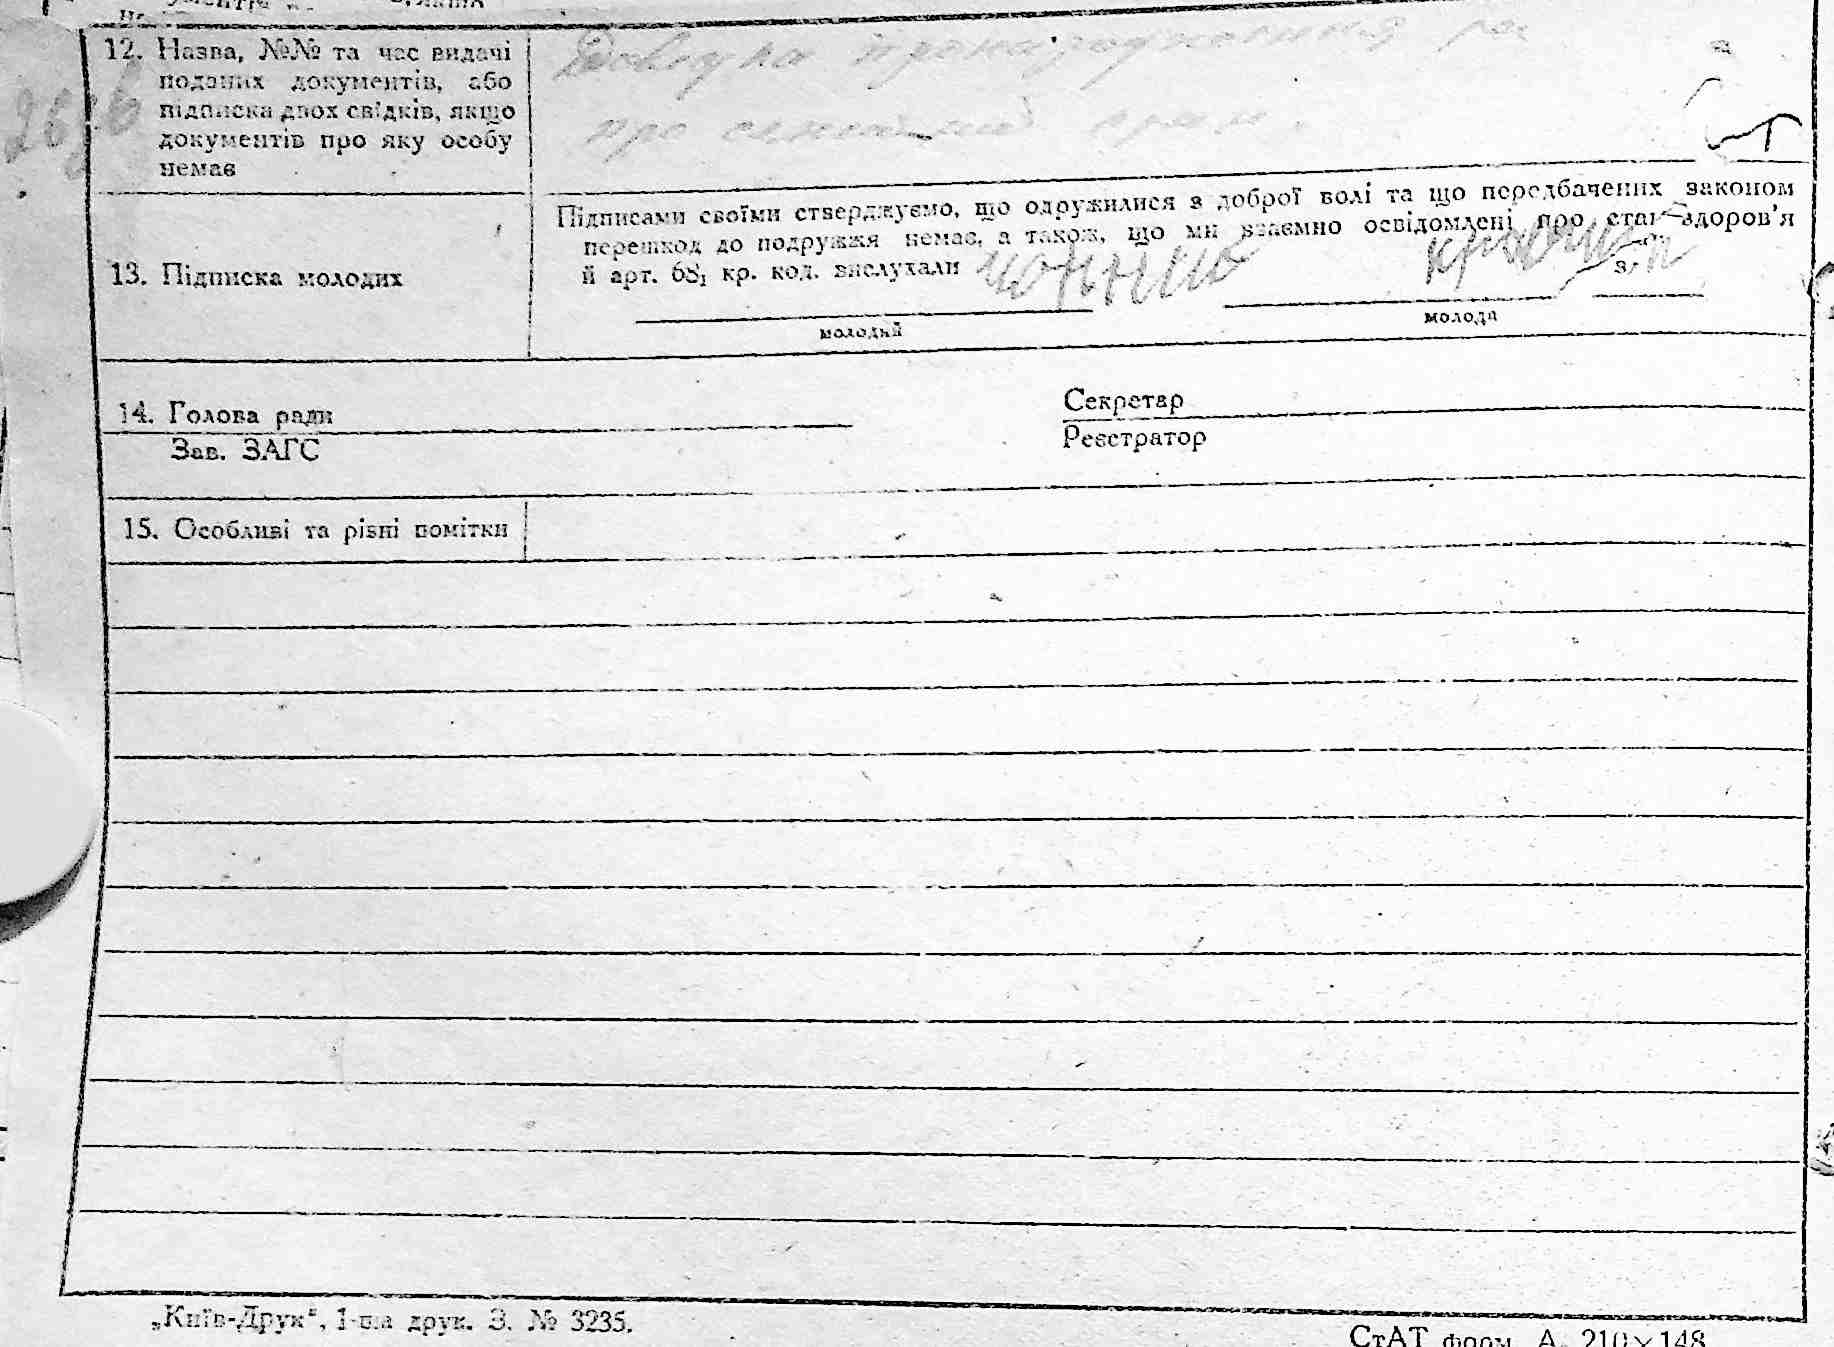 12. Назва, №№ та час видачі
поданих документів, або
підписка двох свідків, якщо
документів про яку особу
немає
Довідка про народження
про сімейний стан.
13. Підписка молодих
Підписами своїми стверджуємо, що одружилися з доброї волі та що передбачених законом
перешкод до подружжя немає, а також, що ми взаємно освідомлені про стан здоров'я
й арт. 68₁ кр. код. вислухали
молодий
молода
14. Голова ради
Зав. ЗАГС
Секретар
Реєстратор
15. Особливі та різні помітки
„Київ-Друк“, 1-ша друк. З. № 3235.
СтАТ форм. А. 210×148